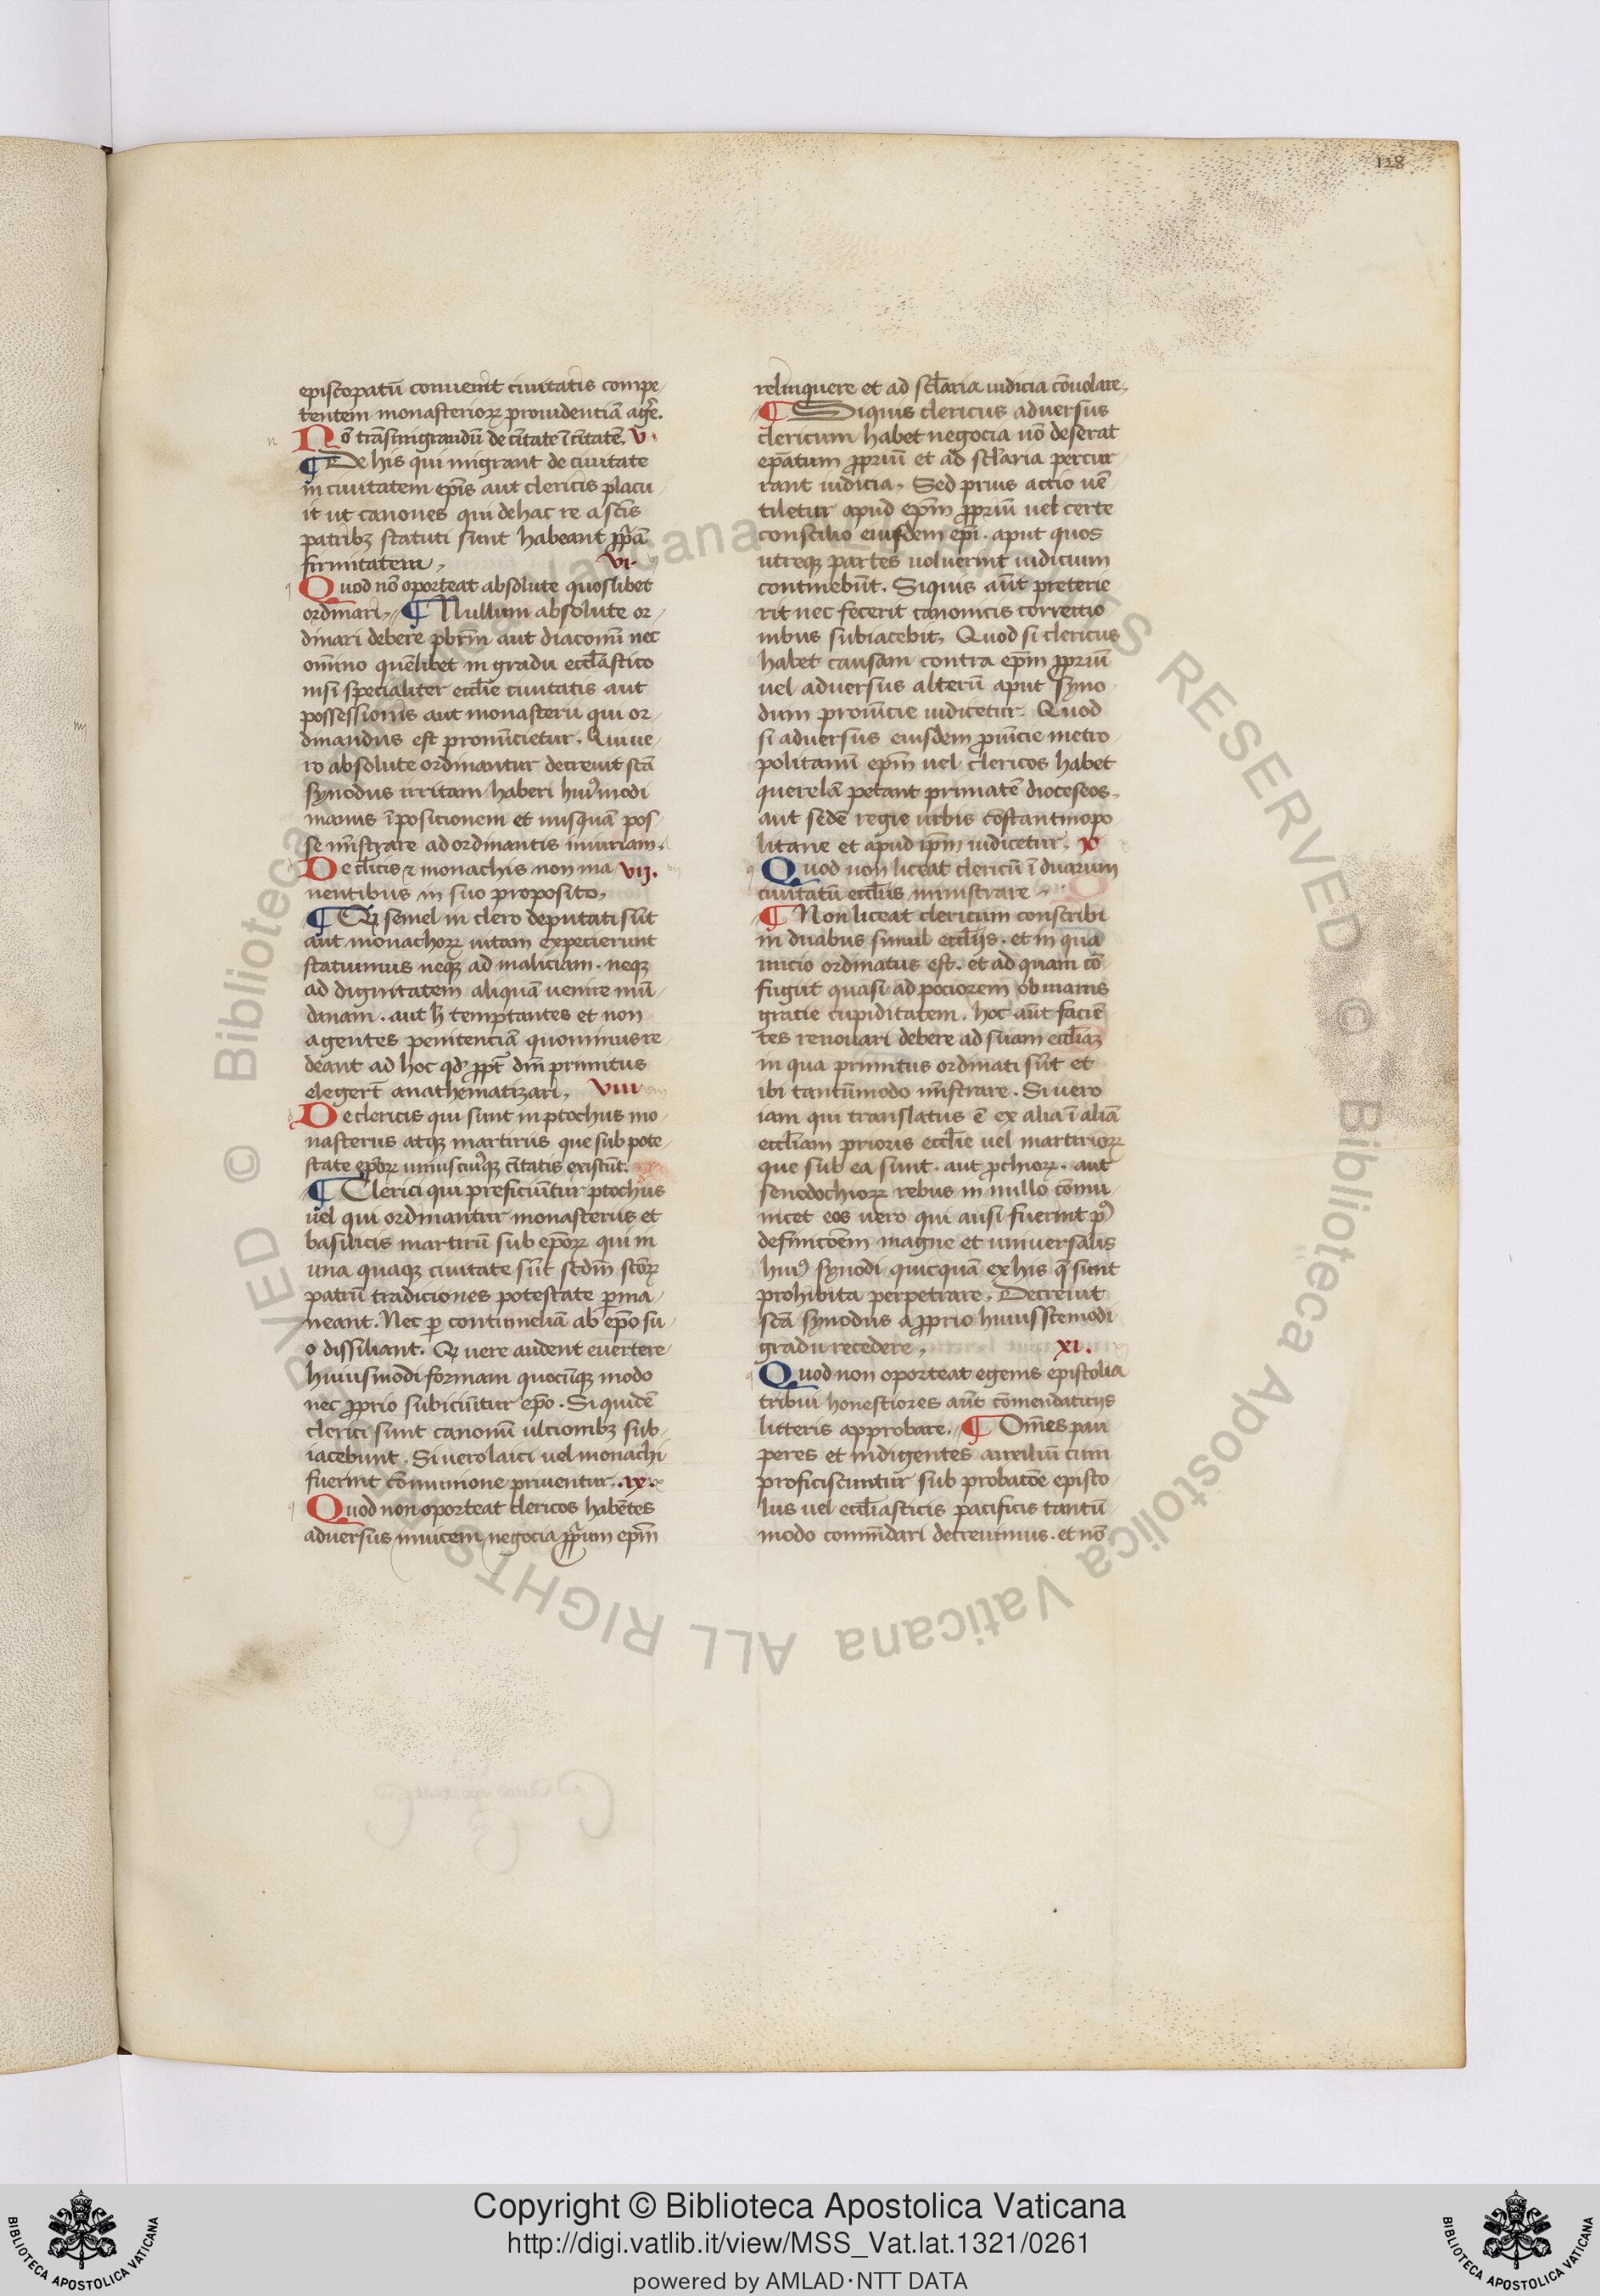 128
episcopatū conuenit ciuitatis compe
tentem monasterioꝝ prouidentiā agr̄e.
Nō trāsmigrandū de cītate ī cītatē. V.
¶ De his qui migrant de ciuitate
in ciuitatem ep̄is aut clericis placu
it ut canones qui de hac re a sc̄is
patribꝫ statuti sunt habeant ꝓpͥā
firmitatem, VI.
Quod nō oporteat absolute quoslibet
ordinari, ¶ Nullum absolute or
dinari debere pb̄rm aut diaconū nec
om̄ino quēlibet in gradu eccl̄astico
nisi specialiter eccl̄ie ciuitatis aut
possessionis aut monasterii qui or
dinandus est pronūcietur. Qui ue
ro absolute ordinantur decreuit sc̄ā
synodus irritam haberi huiꝰmodi
manus īposicionem et nusquā pos
se mīstrare ad ordinantis iniuriam.
De clīcis ⁊ monachis non ma VII.
nentibus in suo proposito,
¶ Qui semel in clero deputati sūt
aut monachoꝝ uitam expecierunt
statuimus neqꝫ ad maliciam. neqꝫ
ad dignitatem aliquā uenire mū
danam. aut h̄ temptantes et non
agentes penitenciā quominus re
deant ad hoc qd̄ ꝓpt̄ dm̄ primitus
elegert̄ anathematizari, VIII
De clericis qui sunt in ptochiis mo
nasteriis atqꝫ martiriis que sub pote
state ep̄oꝝ uniuscuiꝰqꝫ cītatis existūt.
¶ Clerici qui preficiūtur ptochiis
uel qui ordinantur monasteriis et
basilicis martirū sub ep̄oꝝ qui in
una quaqꝫ ciuitate sūt scd̄m sc̄oꝝ
patrū tradiciones potestate ꝑma
neant. Nec ꝑ contumeliā ab ep̄o su
o dissiliant. Qui uere audent euertere
huiusmodi formam quocūqꝫ modo
nec ꝓprio subiciūtur ep̄o. Siquidē
clerici sunt canonū ulcionibꝫ sub
iacebunt. Si uero laici uel monachi
fuerint cōmunione priuentur. IX.
Quod non oporteat clericos habētes
aduersus inuicem negocia ꝓpͥum ep̄m
relinquere et ad scl̄aria iudicia cōuolare.
¶ Siquis clericus aduersus
clericum habet negocia nō deserat
ep̄atum ꝓpriū et ad scl̄aria percur
rant iudicia. Sed prius actio uē
tiletur apud ep̄m ꝓpriū uel certe
conscilio eiusdem ep̄i. aput quos
utreqꝫ partes uoluerint iudicium
continebūt. Siquis aūt preterie
rit nec fecerit canonicis correctio
nibus subiacebit, Quod si clericus
habet causam contra ep̄m ꝓpriū
uel aduersus alterū aput syno
dum prouīcie iudicetur. Quod
si aduersus eiusdem ꝓuīcie metro
politanū ep̄m uel clericos habet
querelā petant primatē dioceseos.
aut sedē regie urbis cōstantinopo
litane et apud ip̄m iudicetur. X
Quod non liceat clericū ī duarum
ciuitatū eccl̄iis ministrare
¶ Non liceat clericum conscribi
in duabus simul eccl̄iis. et in qua
inicio ordinatus est. et ad quam cō
fugit quasi ad pociorem ob inanis
gratie cupiditatem. hoc aūt faciē
tes renouari debere ad suam eccl̄iaꝫ
in qua primitus ordinati sūt et
ibi tantūmodo mīstrare. Si uero
iam qui translatus ē ex alia ī aliā
eccl̄iam prioris eccl̄ie uel martirioꝝ
que sub ea sunt. aut ptochioꝝ. aut
senodochioꝝ rebus in nullo cōmu
nicet eos uero qui ausi fuerint pꝰ
definicōem magne et uniuersalis
huiꝰ synodi quicquā ex his q̄ sunt
prohibita perpetrare. Decreuit
sc̄ā synodus a ꝓprio huiusscemodi
gradu recedere, XI.
Quod non oporteat egenis epistolia
tribui honestiores aūt cōmendaticiis
litteris approbare. ¶ Om̄es pau
peres et indigentes auxiliū cum
proficiscuntur sub probacōe episto
liis uel eccl̄iasticis pacificis tantū
modo commēdari decreuimus. et nō
© Biblioteca Apostolica Vaticana ALL RIGHTS RESERVED
Copyright © Biblioteca Apostolica Vaticana
http://digi.vatlib.it/view/MSS_Vat.lat.1321/0261
powered by AMLAD·NTT DATA
BIBLIOTECA APOSTOLICA VATICANA
BIBLIOTECA APOSTOLICA VATICANA